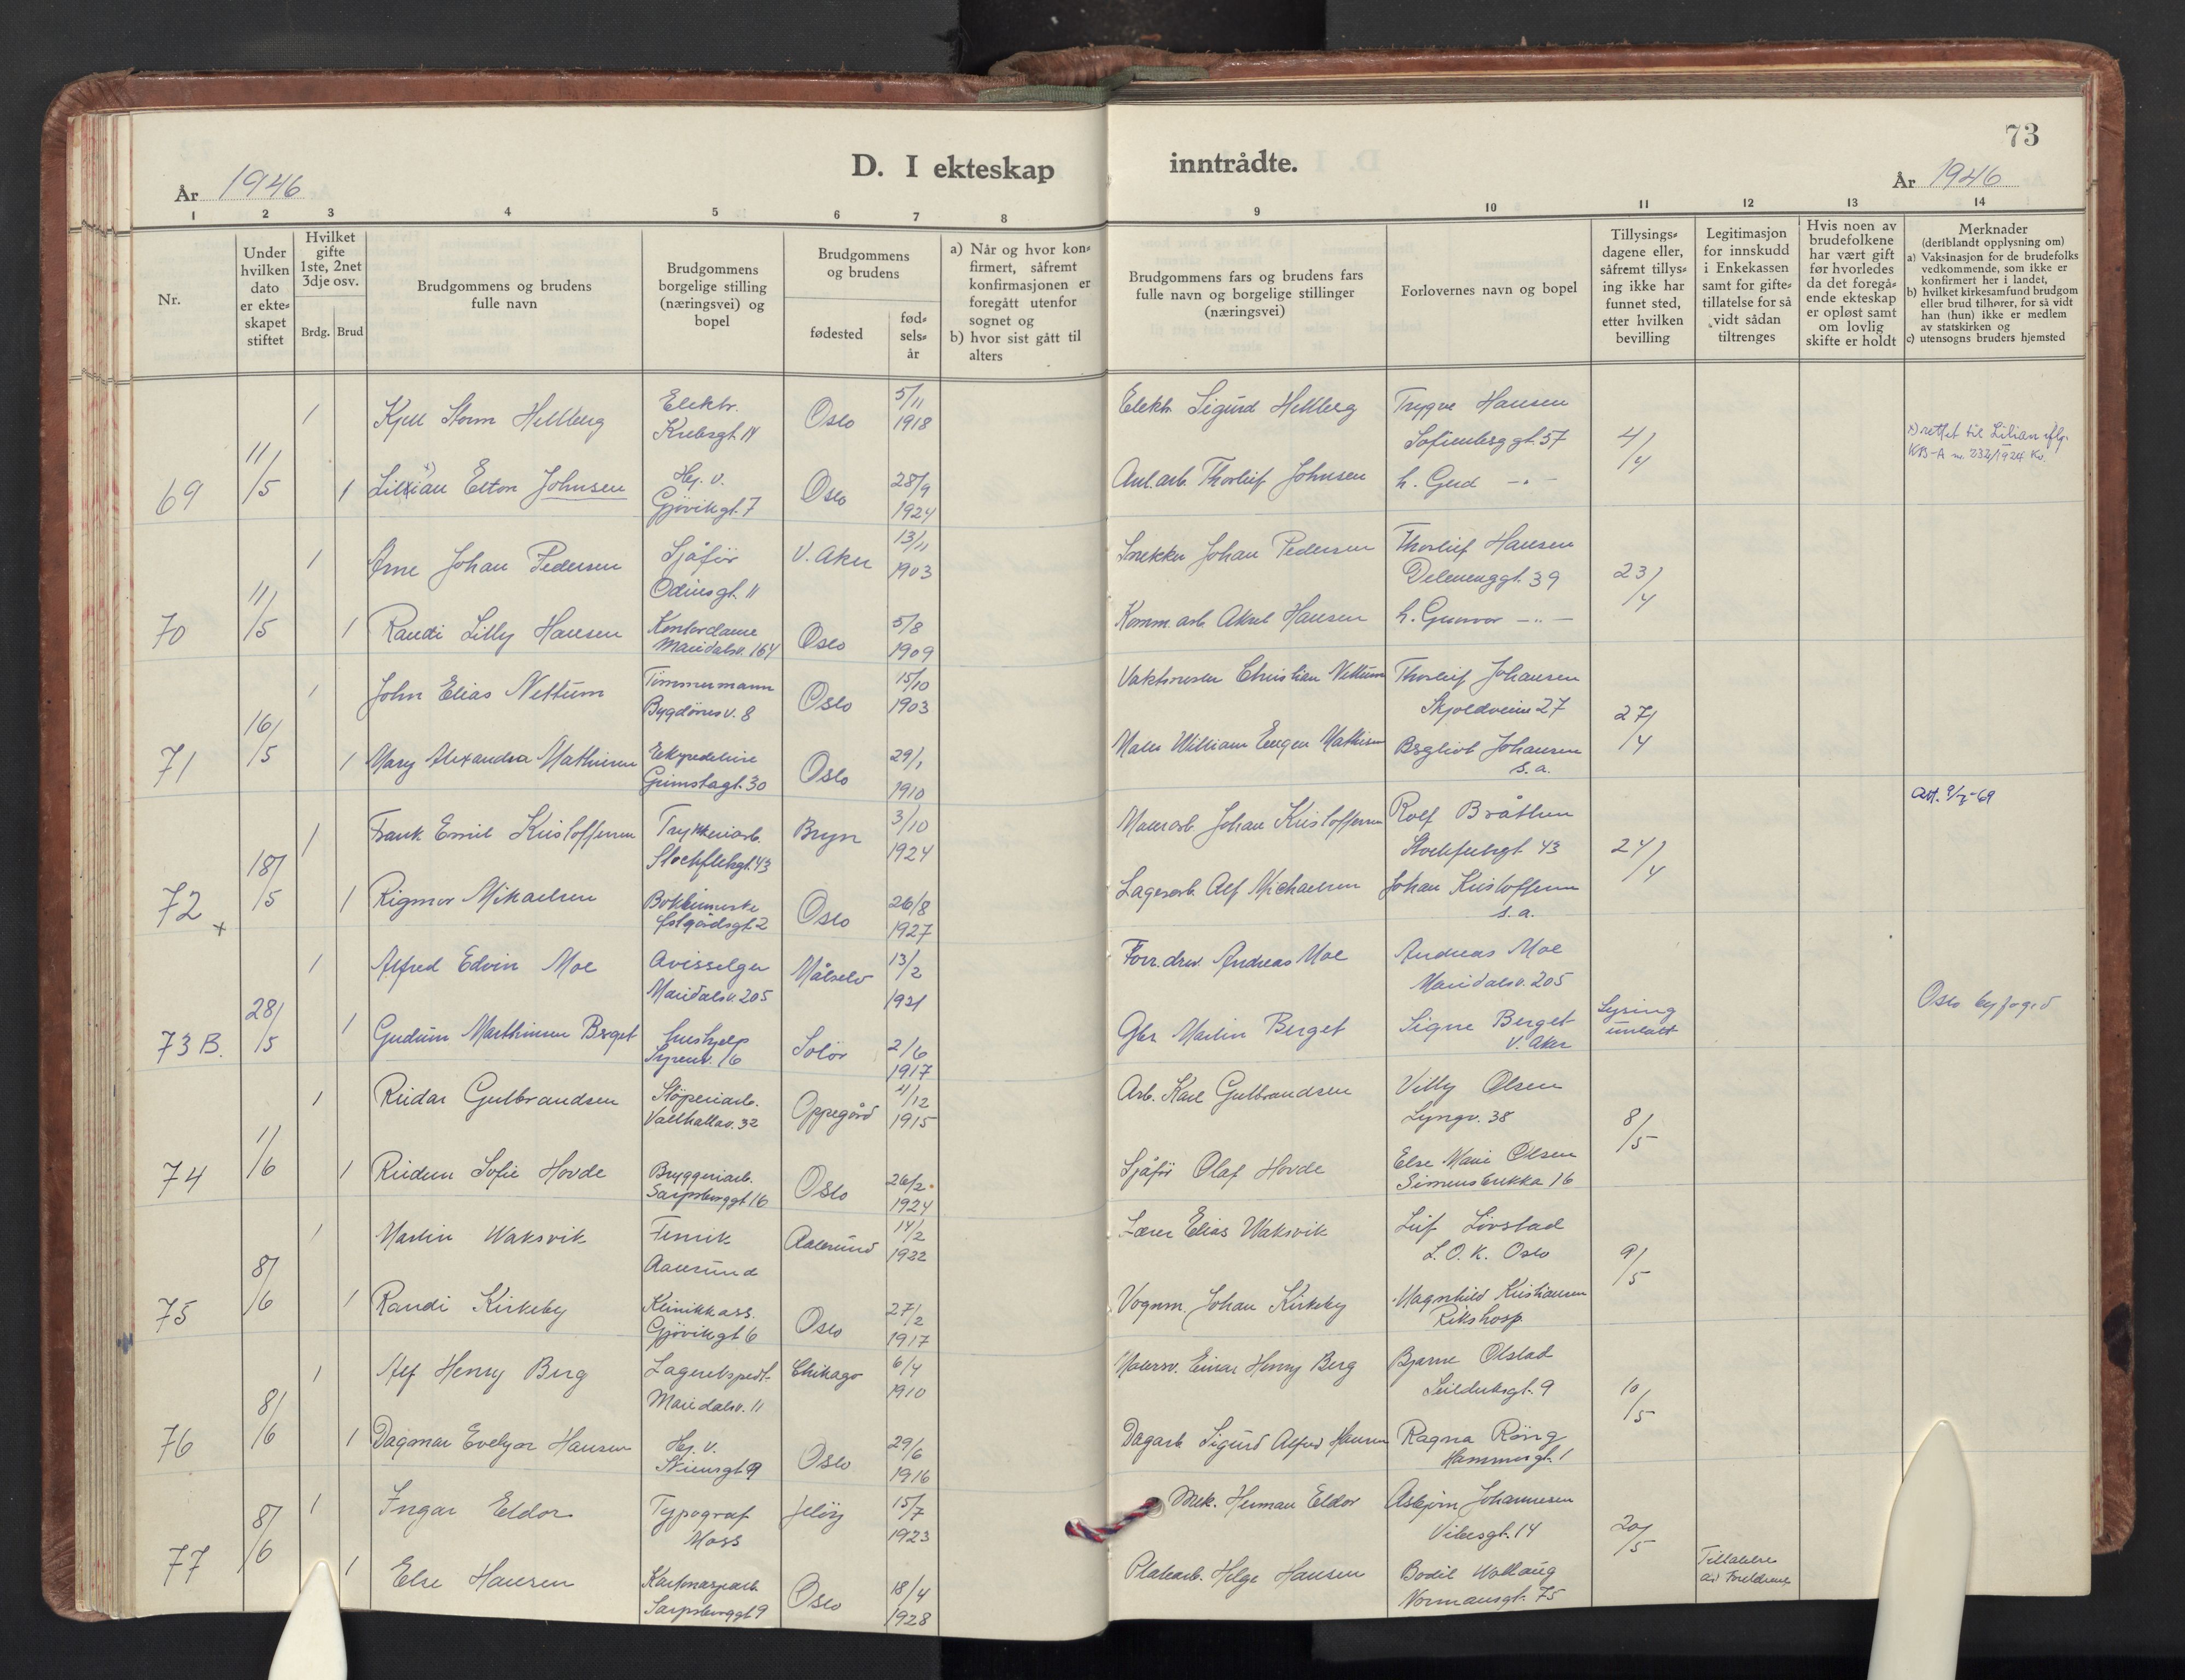 73
D. I ekteskap inntrådte.
År 1946
År 1946
1 2 3 4 5 6 7 8 9 10 11 12 13 14
Nr.
Under
hvilken
dato
er ekte-
skapet
stiftet
Hvilket
gifte
1ste, 2net
3dje osv.
Brdg. Brud
Brudgommens og brudens
fulle navn
Brudgommens
borgelige stilling
(næringsvei) og
bopel
Brudgommens
og brudens
fødested
fød-
sels-
år
a) Når og hvor kon-
firmert, såfremt
konfirmasjonen er
foregått utenfor
sognet og
b) hvor sist gått til
alters
Brudgommens fars og brudens fars
fulle navn og borgelige stillinger
(næringsvei)
Forlovernes navn og bopel
Tillysings-
dagene eller,
såfremt tillys-
ing ikke har
funnet sted,
etter hvilken
bevilling
Legitimasjon
for innskudd
i Enkekassen
samt for gifte-
tillatelse for så
vidt sådan
tiltrenges
Hvis noen av
brudefolkene
har vært gift
før hvorledes
da det foregå-
ende ekteskap
er opløst samt
om lovlig
skifte er holdt
Merknader
(deriblandt opplysning om)
a) Vaksinasjon for de brudefolks
vedkommende, som ikke er
konfirmert her i landet,
b) hvilket kirkesamfund brudgom
eller brud tilhører, for så vidt
han (hun) ikke er medlem
av statskirken og
c) utensogns bruders hjemsted
69 11/5
1 Kjell Storm Hellberg Elektr. Krebsgt. 14 Oslo 5/11 1918 Elektr. Sigurd Hellberg Trygve Hansen Sofienberggt. 57 4/4
1 Lillian Elton Johnsen Hj. v. Gjøvikgt. 7 Oslo 28/9 1924 Anl.arb. Thorleif Johnsen h. Gerd -"-
1) rettet til Lilian iflg.
KB-A nr. 232/1924 Kv.
70 11/5
1 Arne Johan Pedersen Sjåför Odinsgt. 11 V. Aker 13/11 1903 Snekker Johan Pedersen Thorleif Hansen Delenenggt. 39 23/4
1 Randi Lilly Hansen Kontordame Maridalsv. 164 Oslo 5/8 1909 Komm. arb. Aksel Hansen h. Gunvor -"-
71 16/5
1 John Elias Nettum Tömmermann Bygdönesv. 8 Oslo 15/10 1903 Christian Nettum Thorleif Johansen Skjoldveien 27 27/4
1 Mary Alexandra Mathisen Grimstagt. 30 Oslo 29/1 1910 Maler William Eugen Mathisen Bergliot Johansen s. a.
72 x 18/5
1 Frank Emil Kristoffersen Trykkeriarb. Stockflethgt. 43 Bryn 3/10 1924 Murarb. Johan Kristoffersen Rolf Bråthen Stockflethgt. 43 24/4
Att. 9/7-69
1 Rigmor Mikaelsen Oslo 26/8 1927 Lagerarb. Alf Michaelsen Johan Kristoffersen s. a.
73 B. 28/5
1 Alfred Edvin Moe Avisselger Maridalsv. 205 Målselv 13/2 1921 Andreas Moe Andreas Moe Maridalsv. 205 Lysing unlatt
1 Gudrun Marthinsen Berget hushjelp Syrenv. 16 Solör 2/6 1917 Gbr. Martin Berget Signe Berget V. Aker
Oslo byfoged
74 1/6
1 Reidar Gulbrandsen Stöperiarb. Valhallav. 32 Oppegård 4/12 1915 Arb. Karl Gulbrandsen Villy Olsen Lyngv. 38 8/5
1 Reidun Sofie Hovde Bryggeriarb. Sarpsborggt. 16 Oslo 26/2 1924 Sjåför Olaf Hovde Else Marie Olsen Simensbrekka 16
75 8/6
1 Martin Waksvik Fenrik Aalesund Aalesund 14/2 1922 Lærer Elias Waksvik Leif Lövstad L.O.K. Oslo 9/5
1 Randi Kirkeby Klinikkass. Gjøvikgt. 6 Oslo 27/2 1917 Vognm. Johan Kirkeby Magnhild Kristiansen Rikshosp.
76 8/6
1 Alf Henry Berg Lagerekspedt. Maridalsv. 11 Chikago 6/4 1910 Einar Henry Berg Bjarne Olstad Seilduksgt. 9 10/5
1 Dagmar Evelyn Hansen Hj. v. Steensgt. 9 Oslo 29/6 1916 Dagarb. Sigurd Alfred Hansen Ragna Röing Hammersgt. 1
77 8/6
1 Ingar Eldor Typograf Moss Jelöy 15/7 1923 Mek. Herman Eldor Asbjørn Johannesen Vibesgt. 14 20/5
1 Else Hansen Kartonasjearb. Sarpsborggt. 9 Oslo 18/4 1928 Platearb. Helge Hansen Bodil Wollaug Normannsgt. 75
Tillatelse av Foreldrene